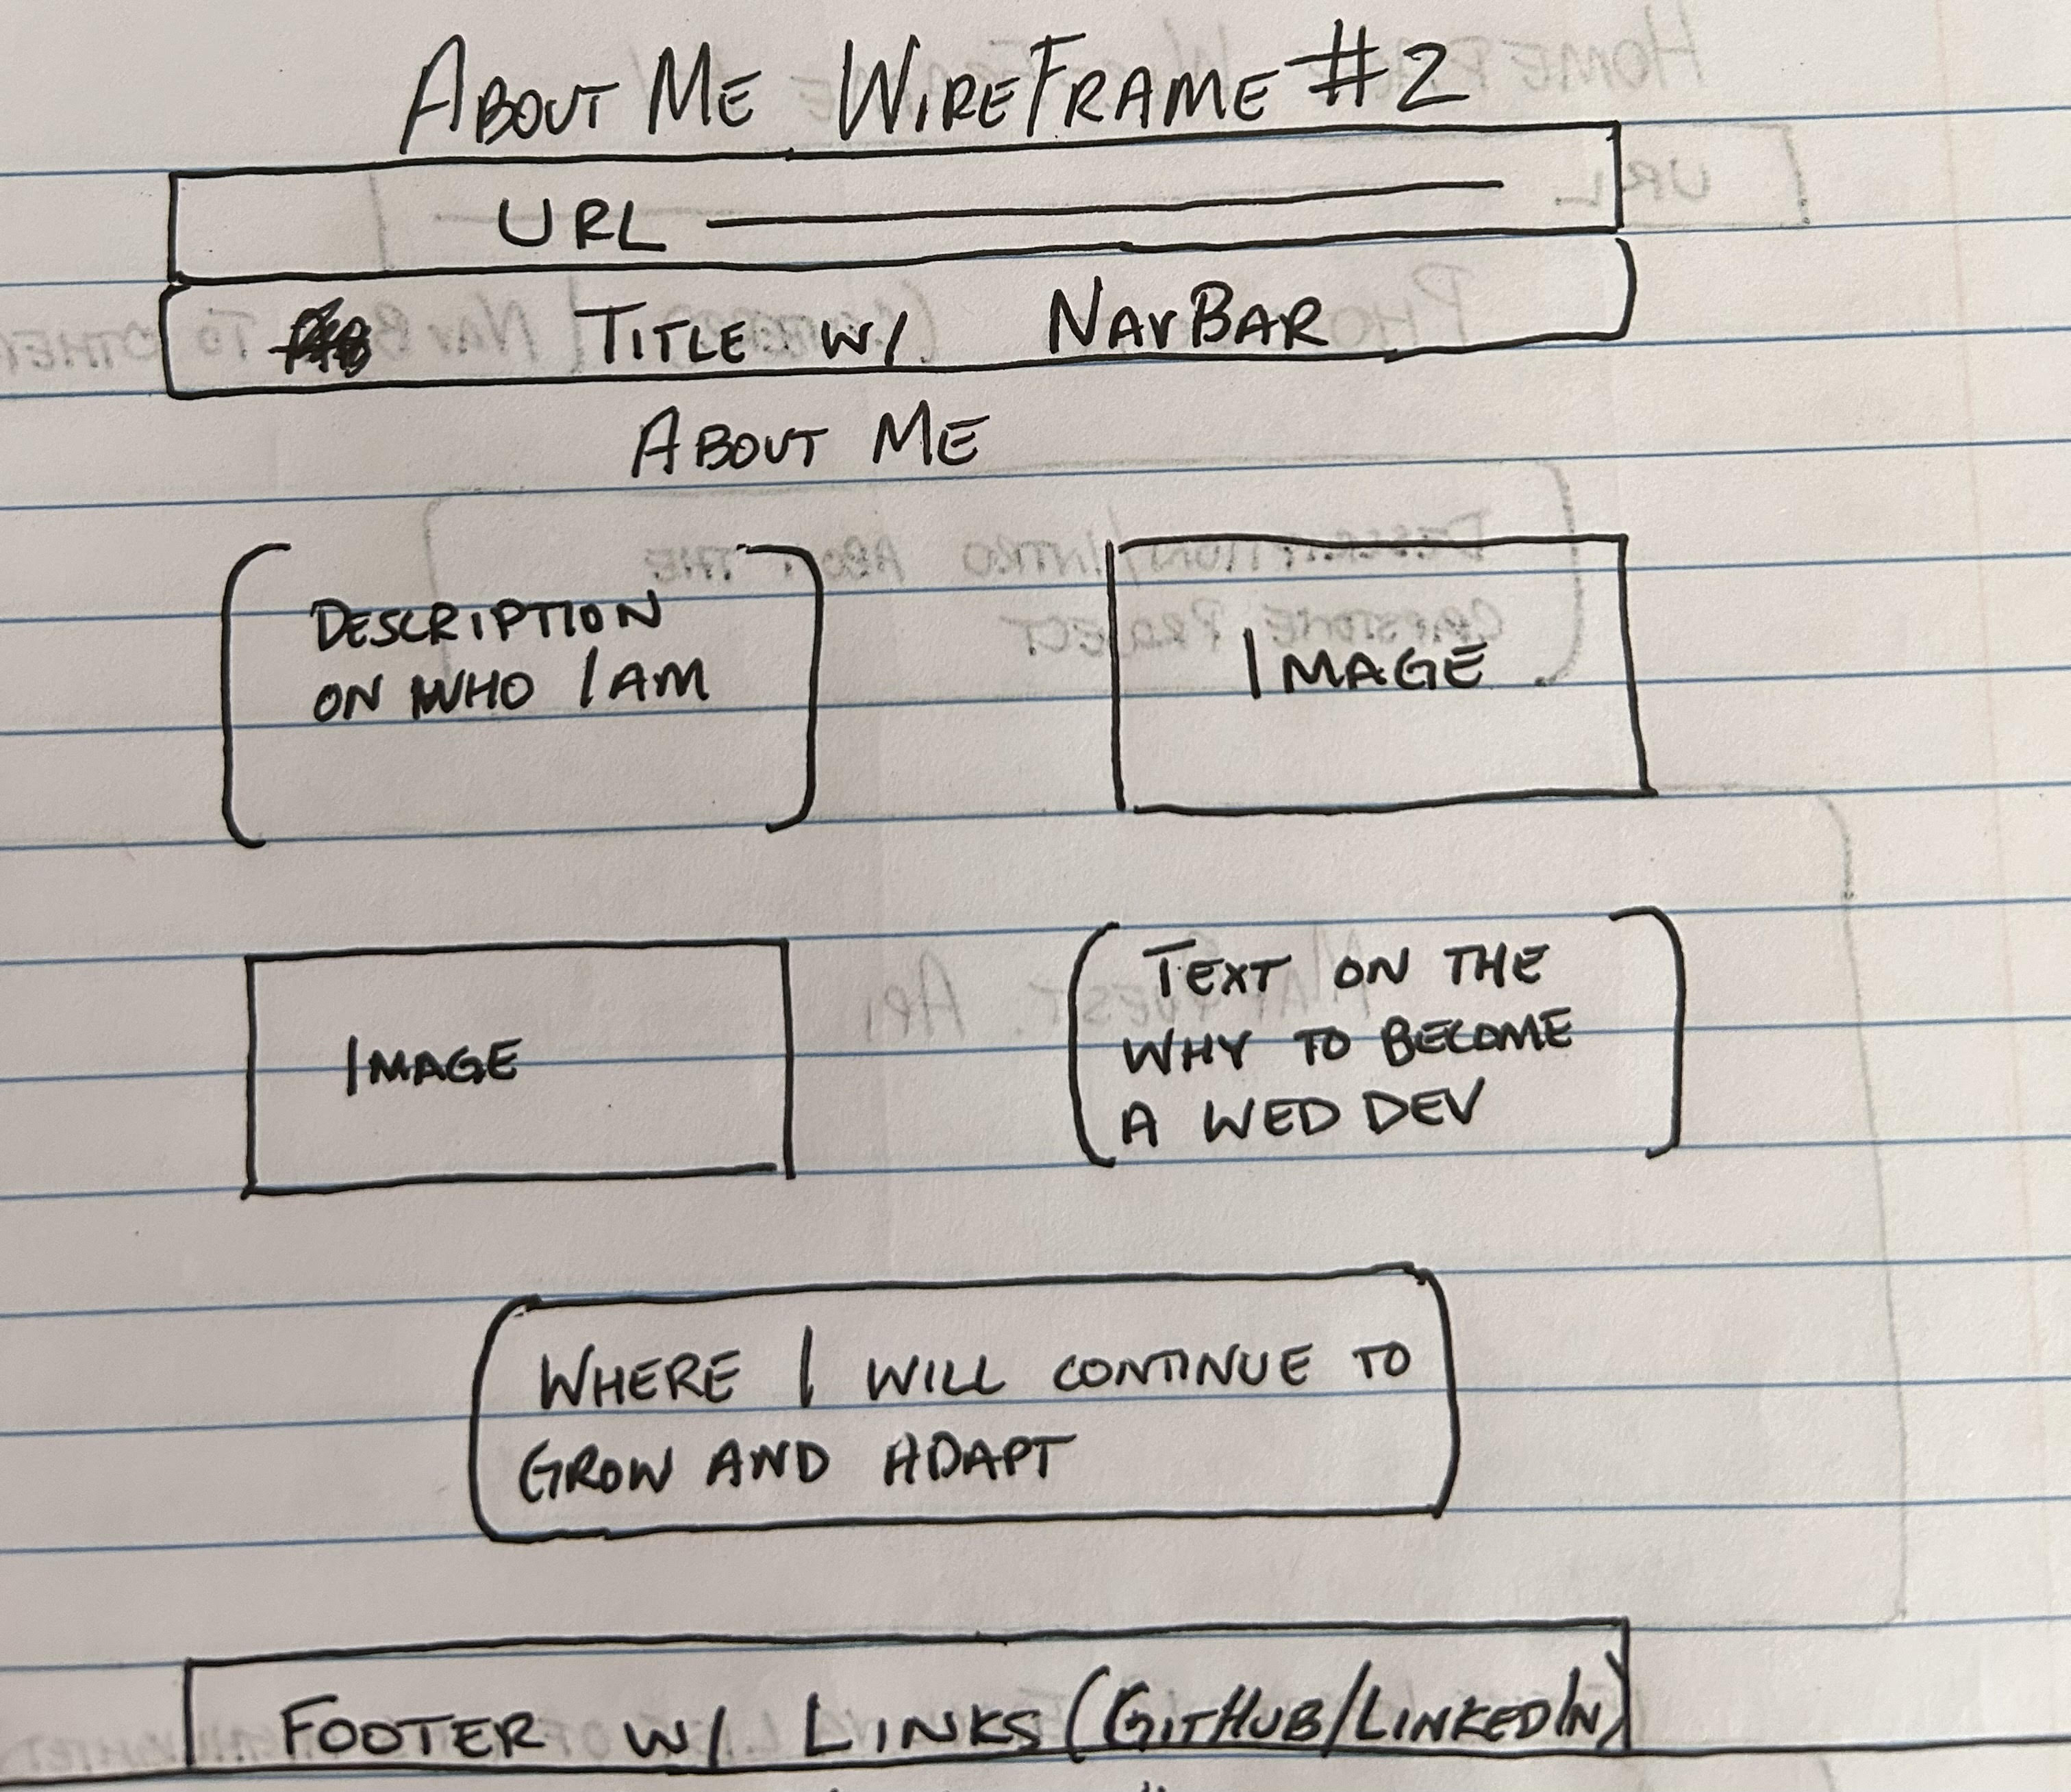 ABOUT ME WIREFRAME #2
URL
TITLE W/ NAVBAR
ABOUT ME
DESCRIPTION
ON WHO I AM
IMAGE
IMAGE
TEXT ON THE
WHY TO BECOME
A WED DEV
WHERE I WILL CONTINUE TO
GROW AND ADAPT
FOOTER W/ LINKS (GITHUB/LINKEDIN)